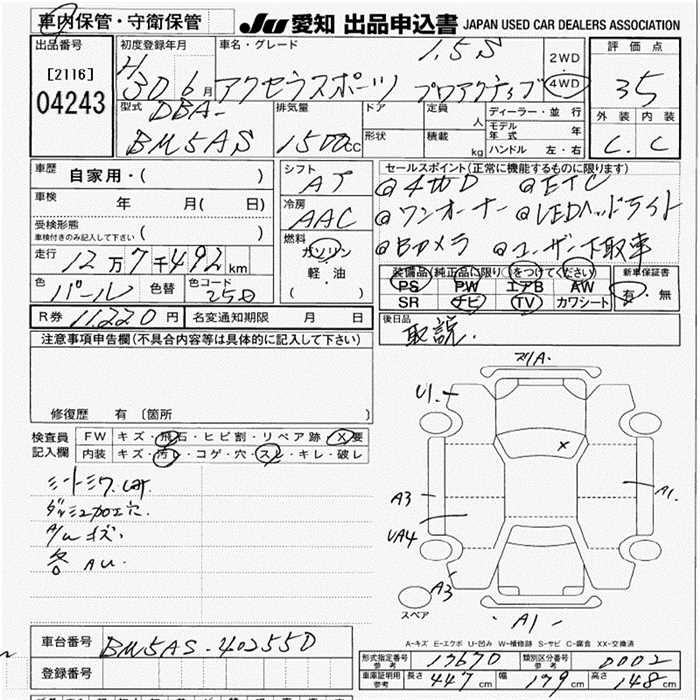 車内保管・守衛保管
JU 愛知 出品申込書 JAPAN USED CAR DEALERS ASSOCIATION
出品番号
[2116]
04243
初度登録年月
H 30 6月
車名・グレード
1.5S
アクセラスポーツ プロアクティブ
2WD
4WD
評価点
3.5
外装 内装
C. C
型式
DBA-
BM5AS
排気量
1500cc
ドア
形状
定員 人
積載 kg
ディーラー・並行
モデル年式 年
ハンドル 左・右
車歴 自家用・( )
車検 年 月( 日)
受検形態
車検付きのみ記入して下さい ( )
走行 12万7千492km
色 パール 色替 色コード 25D
シフト
AT
冷房
AAC
燃料
ガソリン
軽・油
( )
セールスポイント(正常に機能するものに限ります)
@4WD @ETC
@ワンオーナー @LEDヘッドライト
@Bカメラ @ユーザー下取車
装備品(純正品に限り○をつけてください)
PS PW エアB AW
SR ナビ TV カワシート
新車保証書
有・無
R券 11,220円 名変通知期限 月 日
後日品
取説.
注意事項申告欄(不具合内容等は具体的に記入して下さい)
修復歴 有 〔箇所 〕
検査員
記入欄
FW キズ・飛石・ヒビ割・リペア跡・X要
内装 キズ・汚れ・コゲ・穴・スレ・キレ・破レ
シートシワ
ダッシュ加工穴.
A/W キズ.
各 AU.
U1.
X
A3
A1.
UA4
A3
スペア
A1-
A-キズ E-エクボ U-凹み W-補修跡 S-サビ C-腐食 XX-交換済
車台番号 BM5AS-402550
登録番号
形式指定番号 参考 17670 類別区分番号 参考 0002
車庫証明用 参考 長さ 447cm 幅 179cm 高さ 148cm